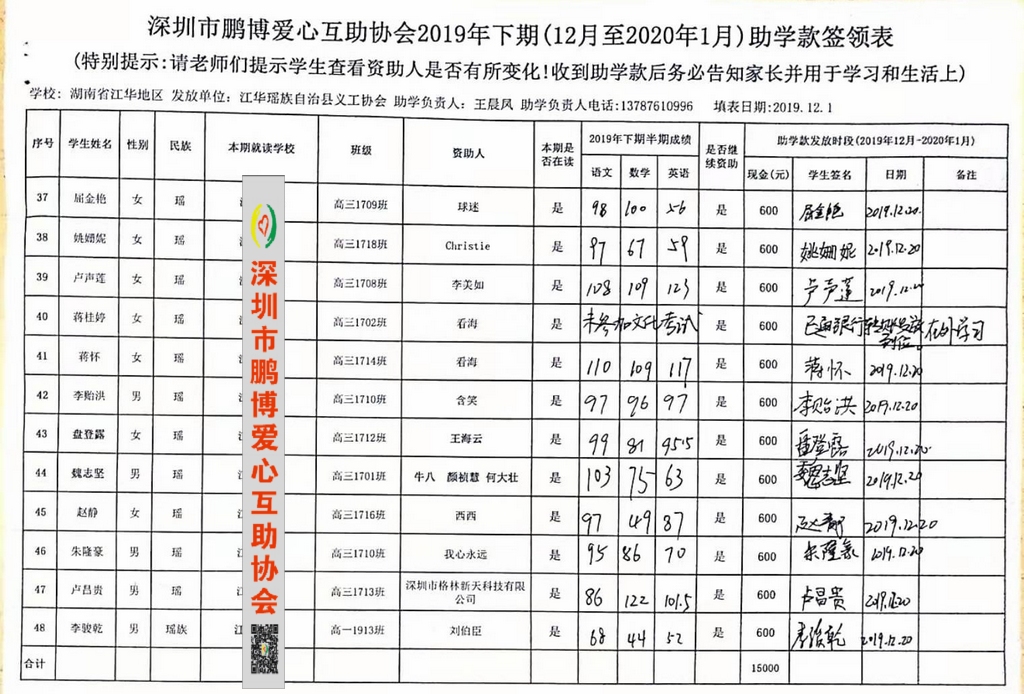 深圳市鹏博爱心互助协会2019年下期(12月至2020年1月)助学款签领表
(特别提示:请老师们提示学生查看资助人是否有所变化!收到助学款后务必告知家长并用于学习和生活上)
学校: 湖南省江华地区 发放单位: 江华瑶族自治县义工协会 助学负责人: 王晨凤 助学负责人电话:13787610996 填表日期:2019.12.1
序号 学生姓名 性别 民族 本期就读学校 班级 资助人 本期是否在读 2019年下期半期成绩 是否继续资助 助学款发放时段(2019年12月-2020年1月)
语文 数学 英语 现金(元) 学生签名 日期 备注
37 屈金艳 女 瑶 高三1709班 球迷 是 98 100 56 是 600 屈金艳 2019.12.20
38 姚姗妮 女 瑶 高三1718班 Christie 是 97 67 59 是 600 姚姗妮 2019.12.20
39 卢声莲 女 瑶 高三1708班 李美如 是 108 109 123 是 600 卢声莲 2019.12.20
40 蒋桂婷 女 瑶 高三1702班 看海 是 未参加文化考试 是 600 已通银行 到位 在外学习
41 蒋怀 女 瑶 高三1714班 看海 是 110 109 117 是 600 蒋怀 2019.12.20
42 李贻洪 男 瑶 高三1710班 含笑 是 97 96 97 是 600 李贻洪 2019.12.20
43 盘登露 女 瑶 高三1712班 王海云 是 99 81 95.5 是 600 盘登露 2019.12.20
44 魏志坚 男 瑶 高三1701班 牛八 颜祯慧 何大壮 是 103 75 63 是 600 魏志坚 2019.12.20
45 赵静 女 瑶 高三1716班 西西 是 97 49 87 是 600 赵静 2019.12.20
46 朱隆豪 男 瑶 江 高三1710班 我心永远 是 95 86 70 是 600 朱隆豪 2019.12.20
47 卢昌贵 男 瑶 江 高三1713班 深圳市格林新天科技有限公司 是 86 122 101.5 是 600 卢昌贵 2019.12.20
48 李骏乾 男 瑶族 江 高一1913班 刘伯臣 是 68 44 52 是 600 李骏乾 2019.12.20
合计 15000
深圳市鹏博爱心互助协会